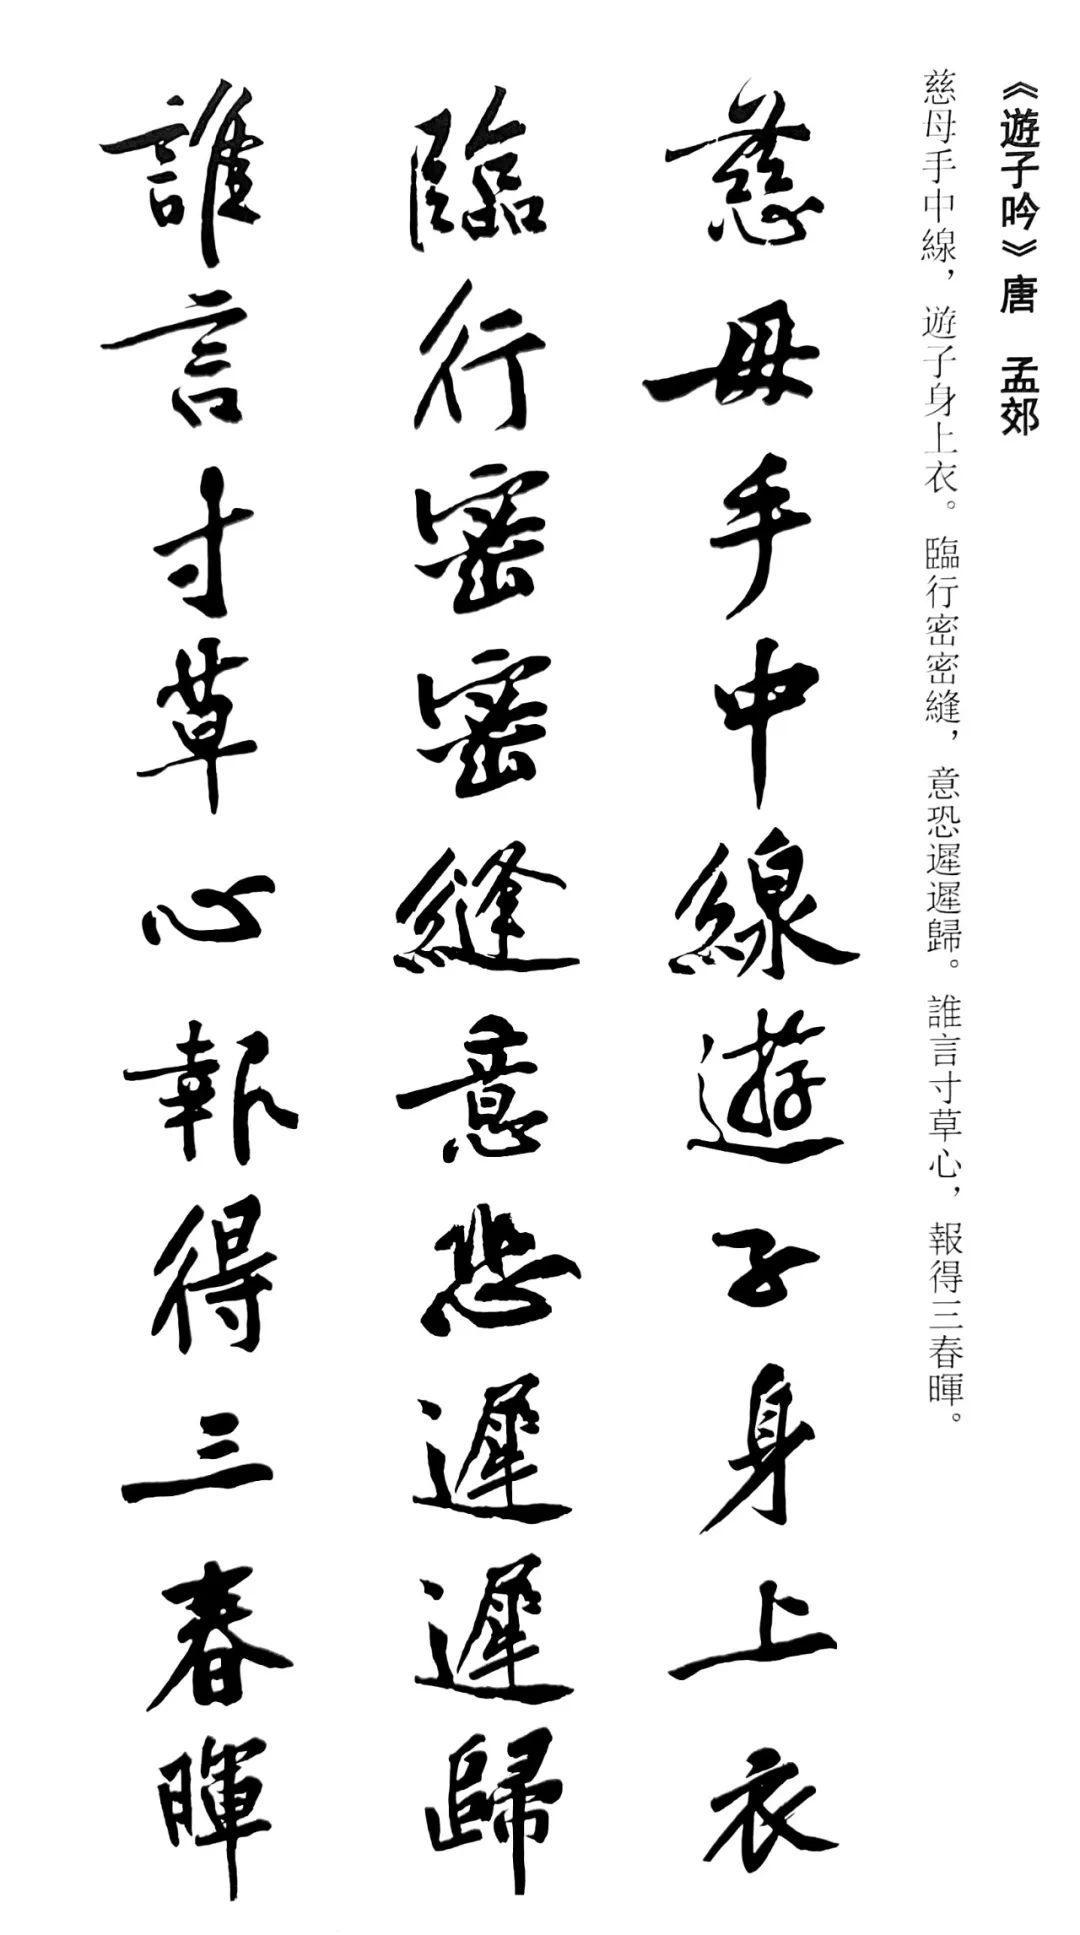 《遊子吟》唐　孟郊
慈母手中線，遊子身上衣。臨行密密縫，意恐遲遲歸。誰言寸草心，報得三春暉。
慈母手中線遊子身上衣
臨行密密縫意恐遲遲歸
誰言寸草心報得三春暉